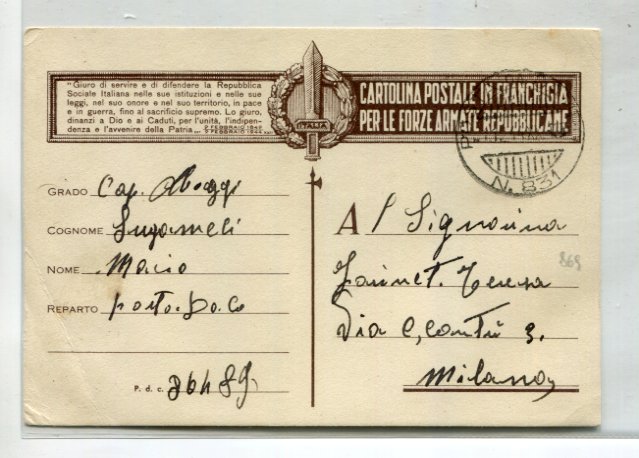 "Giuro di servire e di difendere la Repubblica
Sociale Italiana nelle sue istituzioni e nelle sue
leggi, nel suo onore e nel suo territorio, in pace
e in guerra, fino al sacrificio supremo. Lo giuro,
dinanzi a Dio e ai Caduti, per l'unità, l'indipen-
denza e l'avvenire della Patria„
CARTOLINA POSTALE IN FRANCHIGIA
PER LE FORZE ARMATE REPUBBLICANE
ITALIA
N. 831
GRADO Cap.
COGNOME
NOME Mario
REPARTO
P. d. c. 86489.
A l Signorina
Teresa
Via C, Cantù 3.
Milano
869